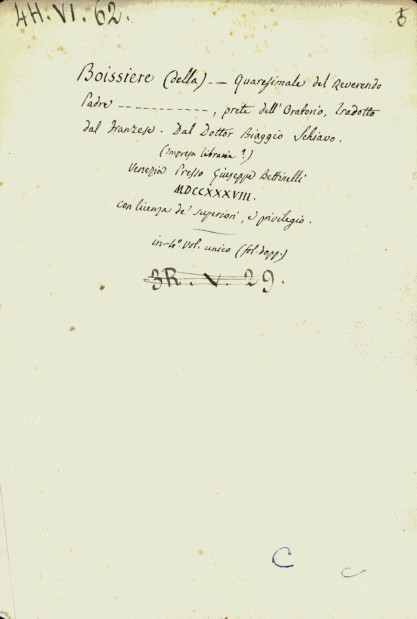 4H.VI.62.
Boissiere (della) _ — Quaresimale del Reverendo
Padre — — — — — — — — — — —, prete dell'Oratorio, tradotto
dal franzese. Dal Dottor Biaggio Schiavo.
(impresa libraria ?)
Venezia Presso Giuseppe Bettinelli
MDCCXXXVIII.
con licenza de' superiori, e privilegio.
in-4º. vol. unico (fol. dopp.)
3R. V. 29.
C c